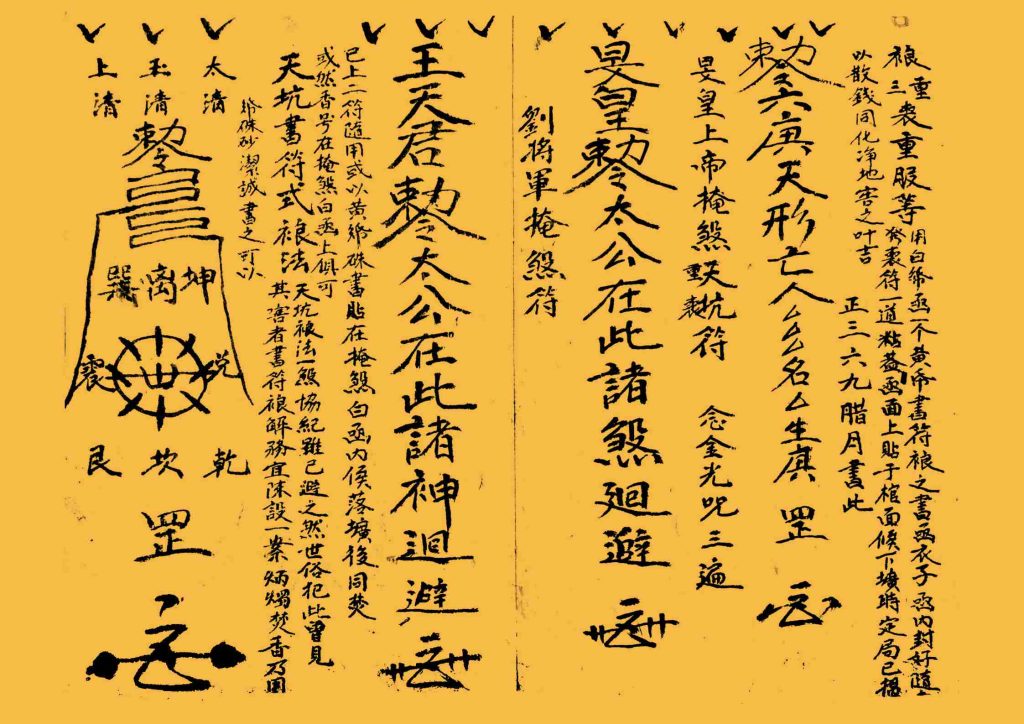 禳三重喪重服等
用白紙函一个黄帋書符禳之書函衣子函内封好隨
喪符一道粘葢函面上貼于棺面候下壙時定局已
以散錢同化净地害之叶吉
正三六九腊月書此
勅令六庚天形亡人厶厶名厶生庚 罡
旻皇上帝掩煞天坑符 念金光咒三遍
旻皇勅令太公在此諸煞廻避
劉將軍掩煞符
王天君勅令太公在此諸神迴避
已上二符隨用或以黄紙硃書貼在掩煞白函内俟落壙後同焚
或然香号在掩煞白函上俱可
天坑書符式禳法
天坑禳法一般協紀雖已避之然世俗犯此曾見
其害者書符禳解務宜陳設一案炳燭焚香乃用
紙硃砂潔誠書之可以
太清
玉清
上清
勅令
坤離巽
兌震
乾坎艮
罡